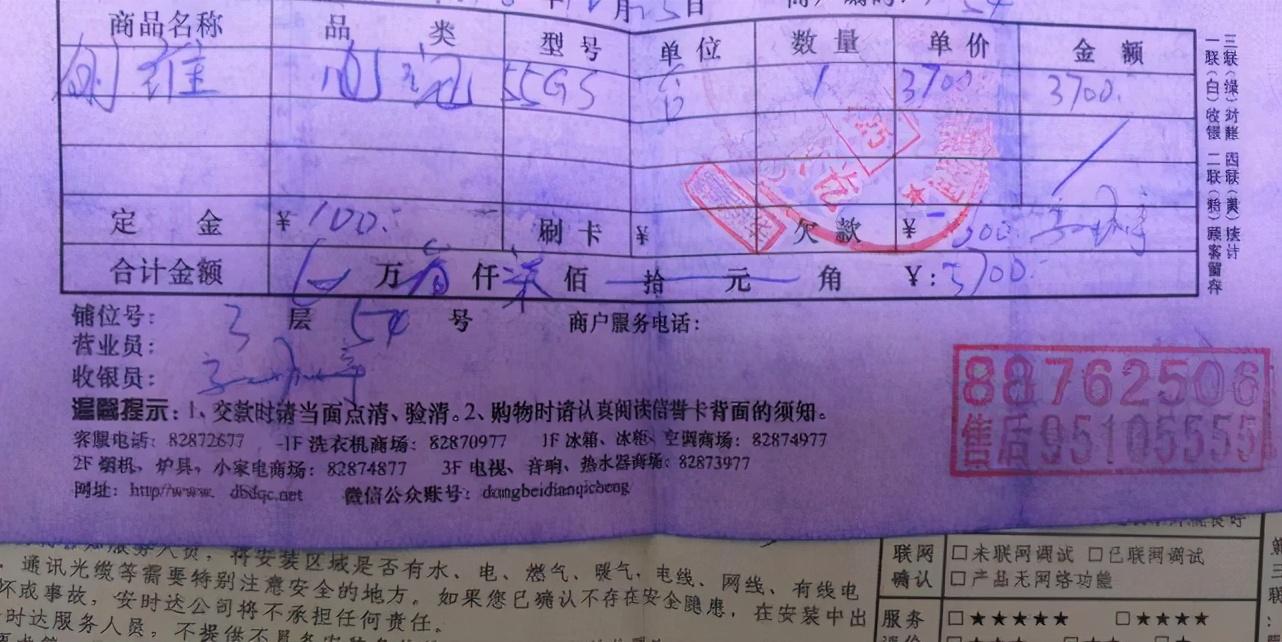 月25日
商品名称 品类 型号 单位 数量 单价 金额
创维 电视 55G5 台 1 3700. 3700.
定金 ¥100. 刷卡 ¥ 欠款 ¥
合计金额 万 仟 柒 佰 拾 元 角 ¥:3700.
铺位号: 3 层 54 号 商户服务电话:
营业员:
收银员:
温馨提示:1、交款时请当面点清、验清。2、购物时请认真阅读信誉卡背面的须知。
客服电话: 82872677 -1F 洗衣机商场: 82870977 1F 冰箱、冰柜、空调商场: 82874977
2F 烟机, 炉具, 小家电商场: 82874877 3F 电视、音响、热水器商场: 82873977
网址: http//www. dbdqc.net 微信公众账号: dongbeidianqicheng
一联(白)收银 二联(粉)顾客留存
三联(绿)对账 四联(黄)统计
88762506
售后95105555
服务人员, 将安装区域是否有水、电、燃气、暖气、电线、网线、有线电
通讯光缆等需要特别注意安全的地方。如果您已确认不存在安全隐患, 在安装中出
坏或事故, 安时达公司将不承担任何责任。
时达服务人员, 不提供不具备安装条件
联网确认 □未联网调试 □已联网调试
□产品无网络功能
服务 □★★★★★ □★★★★